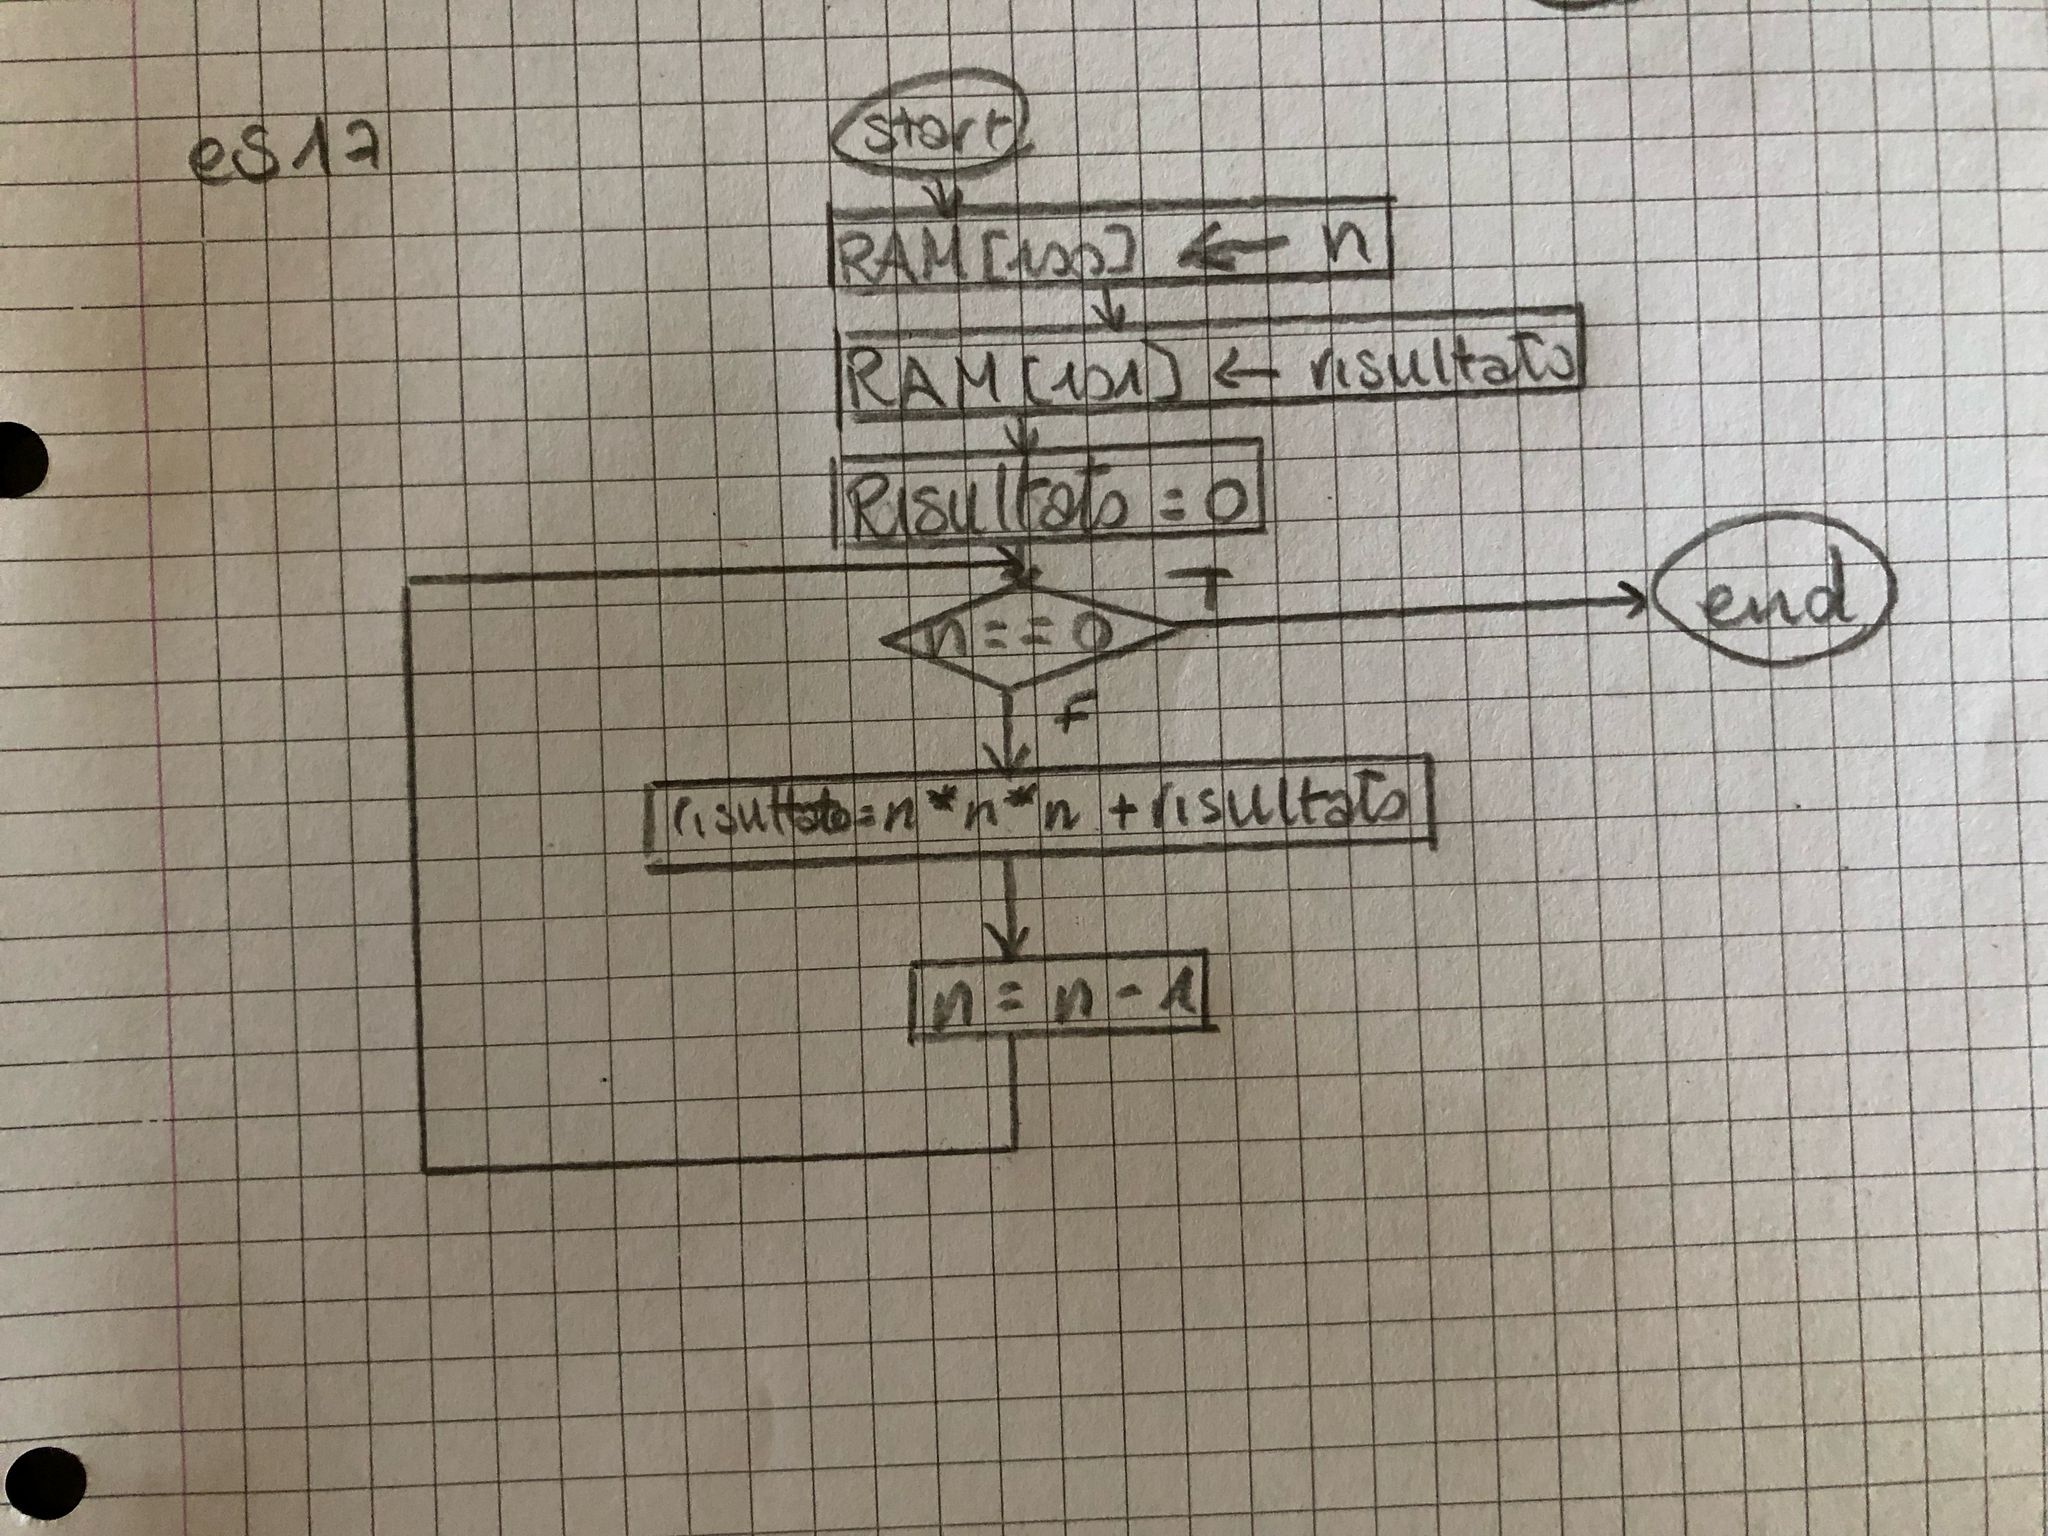 es17
start
RAM[100] ← n
RAM[101] ← risultato
Risultato = 0
n == 0
T
end
F
risultato = n*n*n + risultato
n = n - 1